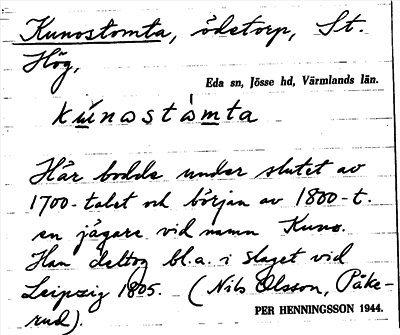 Kunostomta, ödetorp, St.
Hög,
Eda sn, Jösse hd, Värmlands län.
kúnostòmta
Här bodde under slutet av
1700-talet och början av 1800-t.
en jägare vid namn Kuno.
Han deltog bl.a. i slaget vid
Leipzig 1805. (Nils Olsson, Påke-
rud).
PER HENNINGSSON 1944.